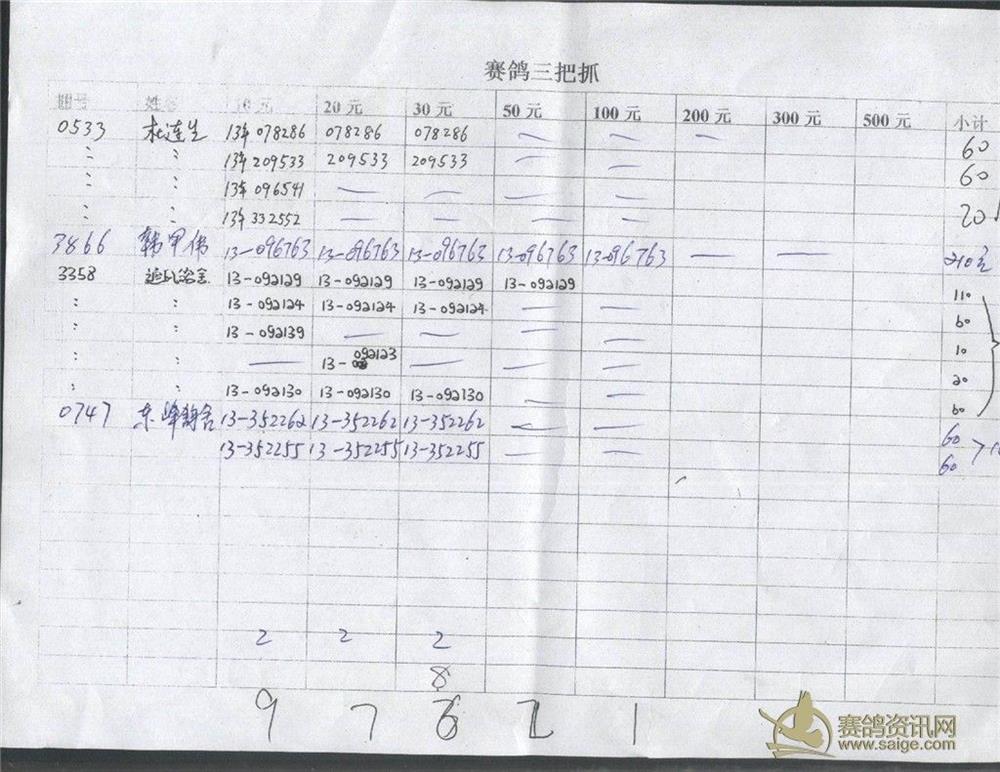 赛鸽三把抓
棚号 姓名 10元 20元 30元 50元 100元 200元 300元 500元 小计
0533 杜连生 13年078286 078286 078286 — — — 60
〃 〃 13年209533 209533 209533 — — 60
〃 〃 13年096541 — — — —
〃 〃 13年332552 — — — — 20
3866 韩甲伟 13-096763 13-096763 13-096763 13-096763 13-096763 — — 210元
3358 13-092129 13-092129 13-092129 13-092129 110
〃 〃 13-092124 13-092124 13-092124 — — 60
〃 〃 13-092139 — — — — 10
〃 〃 — 13-092123 — — — 20
〃 〃 13-092130 13-092130 13-092130 — — 60
0747 东峰鸽舍 13-352262 13-352262 13-352262 — — 60
13-352255 13-352255 13-352255 — — 60
2 2 2
8
9 7 6 2 1
赛鸽资讯网
www.saige.com